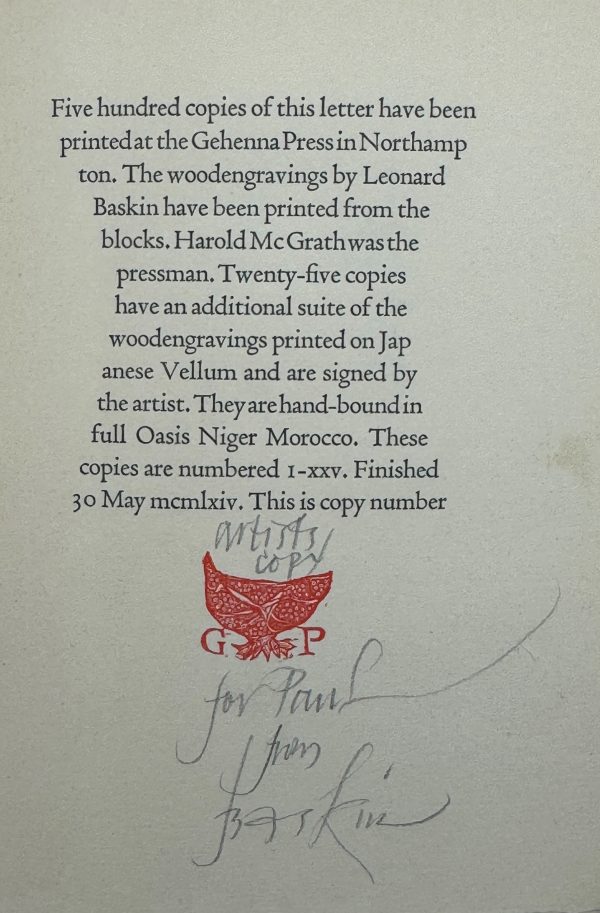 Five hundred copies of this letter have been
printed at the Gehenna Press in Northamp
ton. The woodengravings by Leonard
Baskin have been printed from the
blocks. Harold McGrath was the
pressman. Twenty-five copies
have an additional suite of the
woodengravings printed on Jap
anese Vellum and are signed by
the artist. They are hand-bound in
full Oasis Niger Morocco. These
copies are numbered 1-xxv. Finished
30 May mcmlxiv. This is copy number
artists
copy
G P
for Paul
from
Baskin